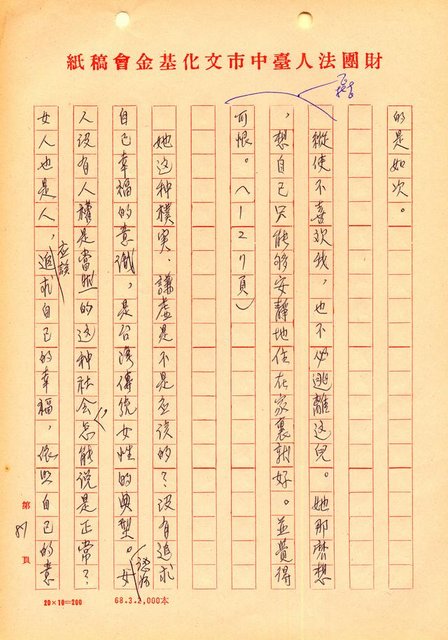 財團法人臺中市文化基金會稿紙
的是如次。
縱使不喜欢我，也不必逃離這兒。她那麽想
，想自己只能够安靜地住在家裏就好。並覺得
可恨。（一２７頁）
她这种樸実、謙虚是不是应该的？没有追求
自己幸福的意識，是台湾傳統女性的典型。女
人没有人權是當然的这种社会怎能说是正常？
女人也是人，应該追求自己的幸福，依照自己的意
第 81 頁
20×10=200
68.3.2,000本